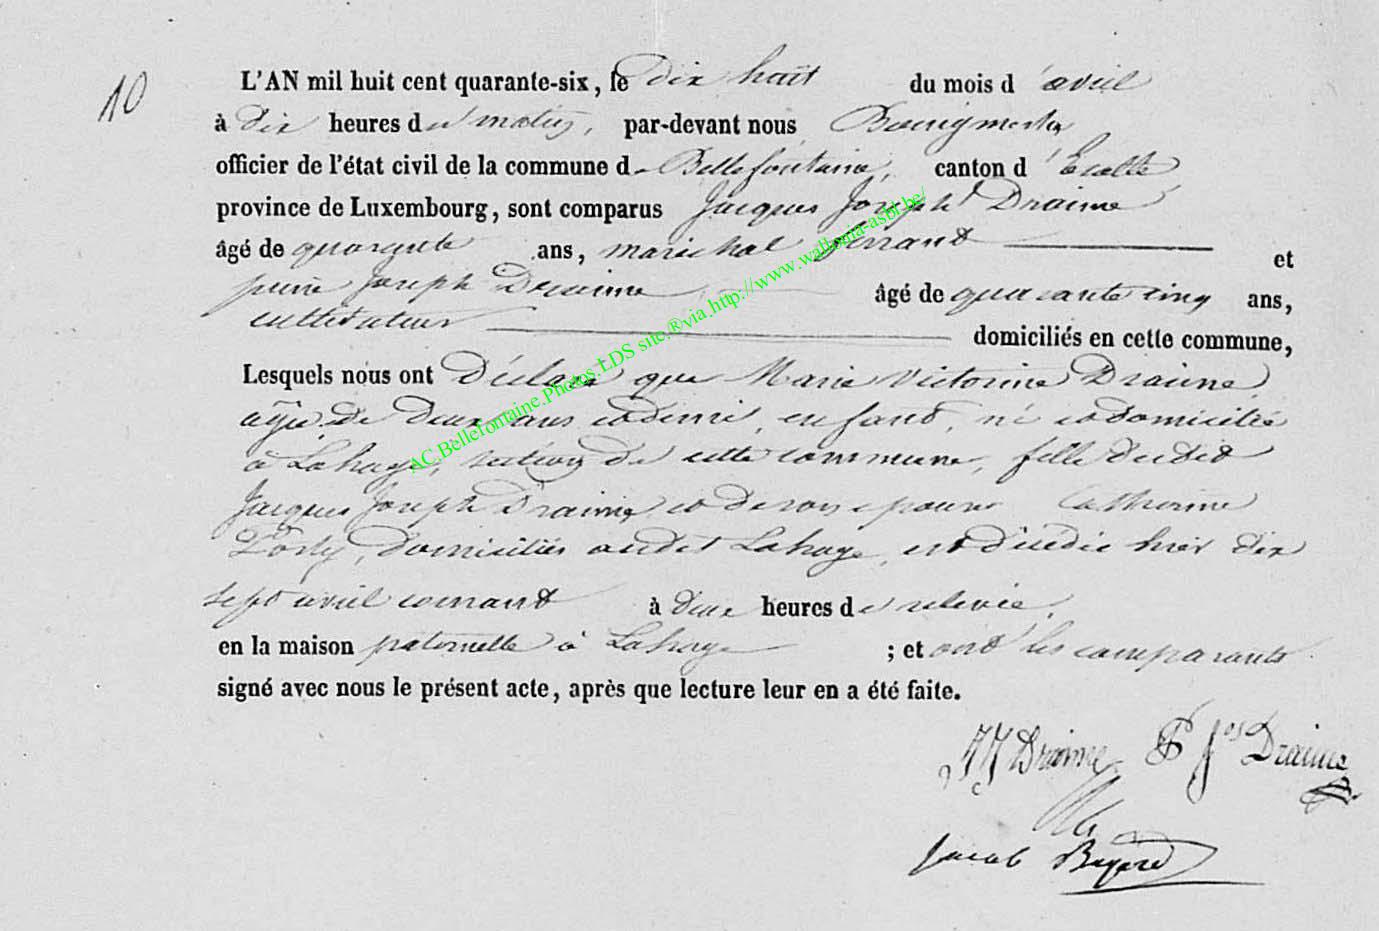 10
L'AN mil huit cent quarante-six, le dix huit du mois d'avril
à dix heures du matin, par-devant nous Bourgmestre
officier de l'état civil de la commune de Bellefontaine, canton d'Etalle
province de Luxembourg, sont comparus Jacques Joseph Draime
âgé de quarante ans, marechal ferrant et
pierre Joseph Draime âgé de quarante cinq ans,
cultivateur domiciliés en cette commune,
Lesquels nous ont déclaré que Marie Victorine Draime
agée de deux ans et demi, enfant, né et domiciliée
à Lahage, section de cette commune, fille dudit
Jacques Joseph Draime et de son epouse Catherine
domiciliés audit Lahage, est décédée hier dix
sept avril courant à deux heures de relevée,
en la maison paternelle à Lahage ; et ont les comparants
signé avec nous le présent acte, après que lecture leur en a été faite.
JJ Draime P Jos Draime
Jacob
AC.Bellefontaine.Photos.LDS site.®via.http://www.wallonia-asbl.be/